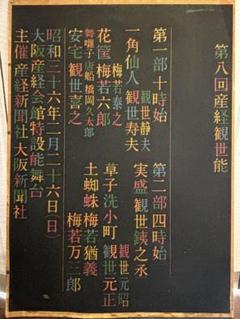 第八回産経観世能
第一部十時始
観世静夫
一角仙人 観世寿夫
梅若泰之
花筐 梅若六郎
舞囃子 唐船 橋岡久太郎
安宅 観世喜之
第二部四時始
実盛 観世銕之丞
観世元昭
草子洗小町 観世元正
土蜘蛛 梅若猶義
梅若万三郎
昭和三十六年二月二十六日(日)
大阪産経会館特設能舞台
主催産経新聞社大阪新聞社